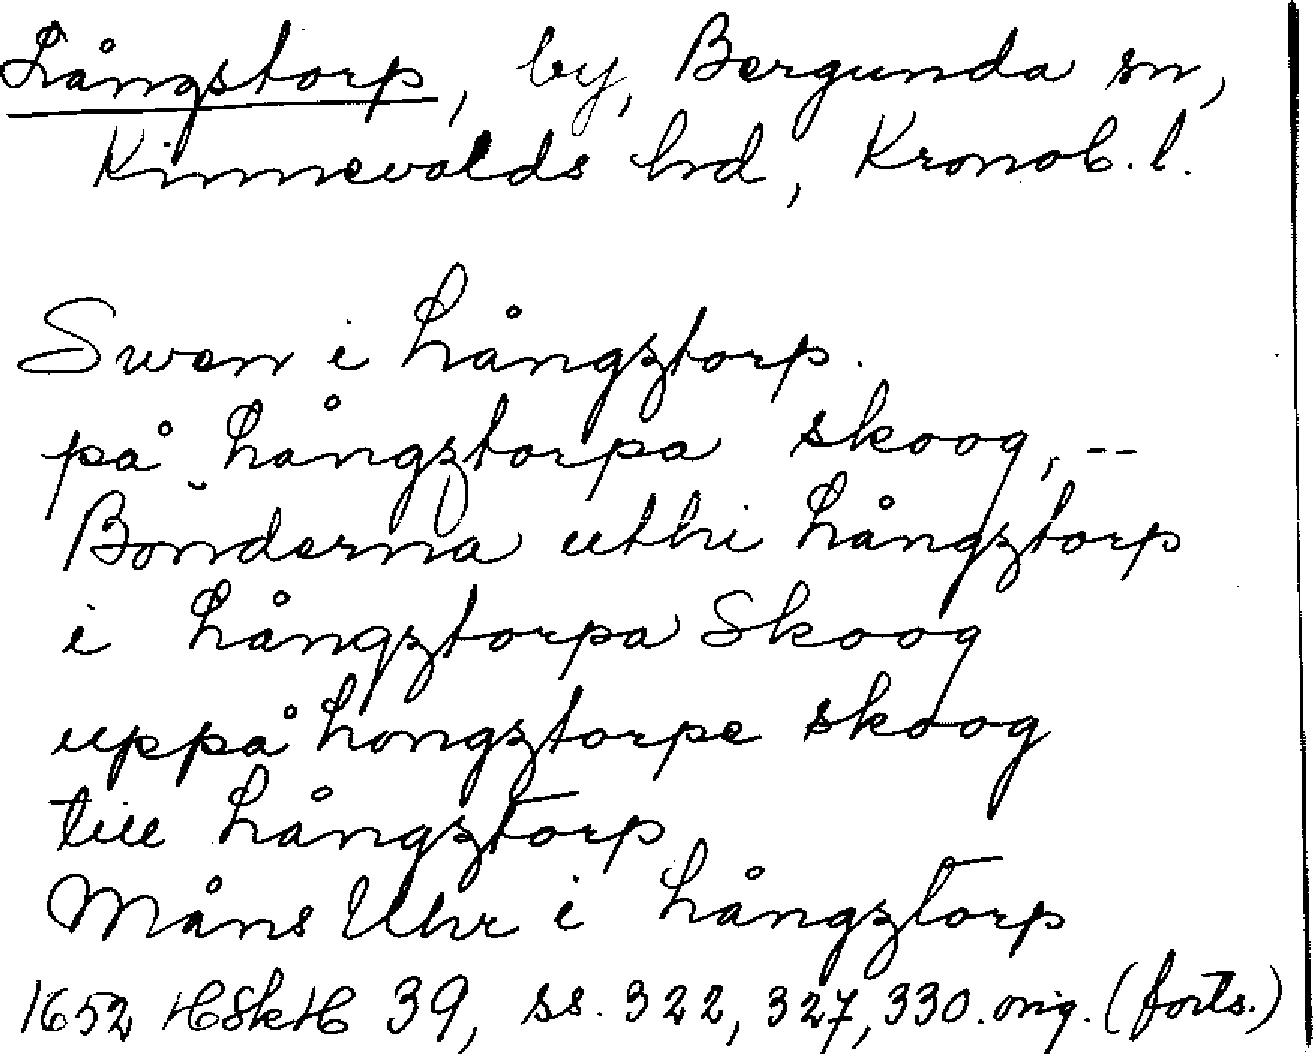 Långstorp, by, Bergunda sn,
Kinnevalds hrd, Kronob. l.
Swen i Långztorp.
på Långztorpa skoog, --
Bönderna uthi Långztorp
i Långztorpa Skoog
uppå Longztorpe skoog
till Långztorp
Måns Uhr i Långztorp
1652 HSkH 39, ss. 322, 327, 330. orig. (forts.)